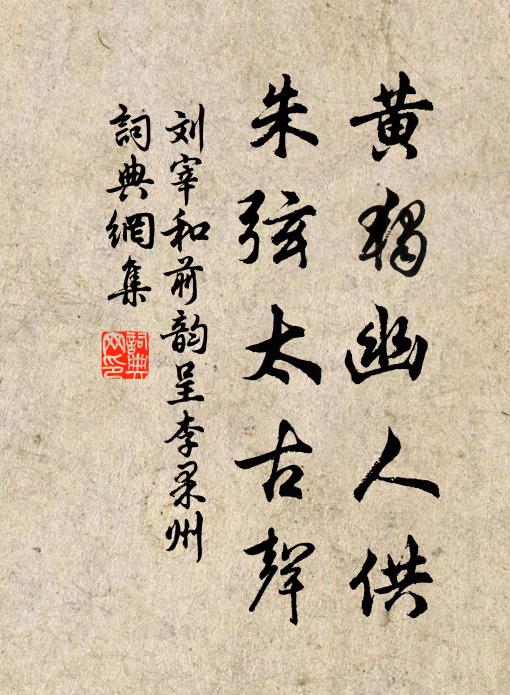 黄獨幽人供
朱弦太古聲
刘宰和前韵呈李果州
詞典網集
詞典
网印